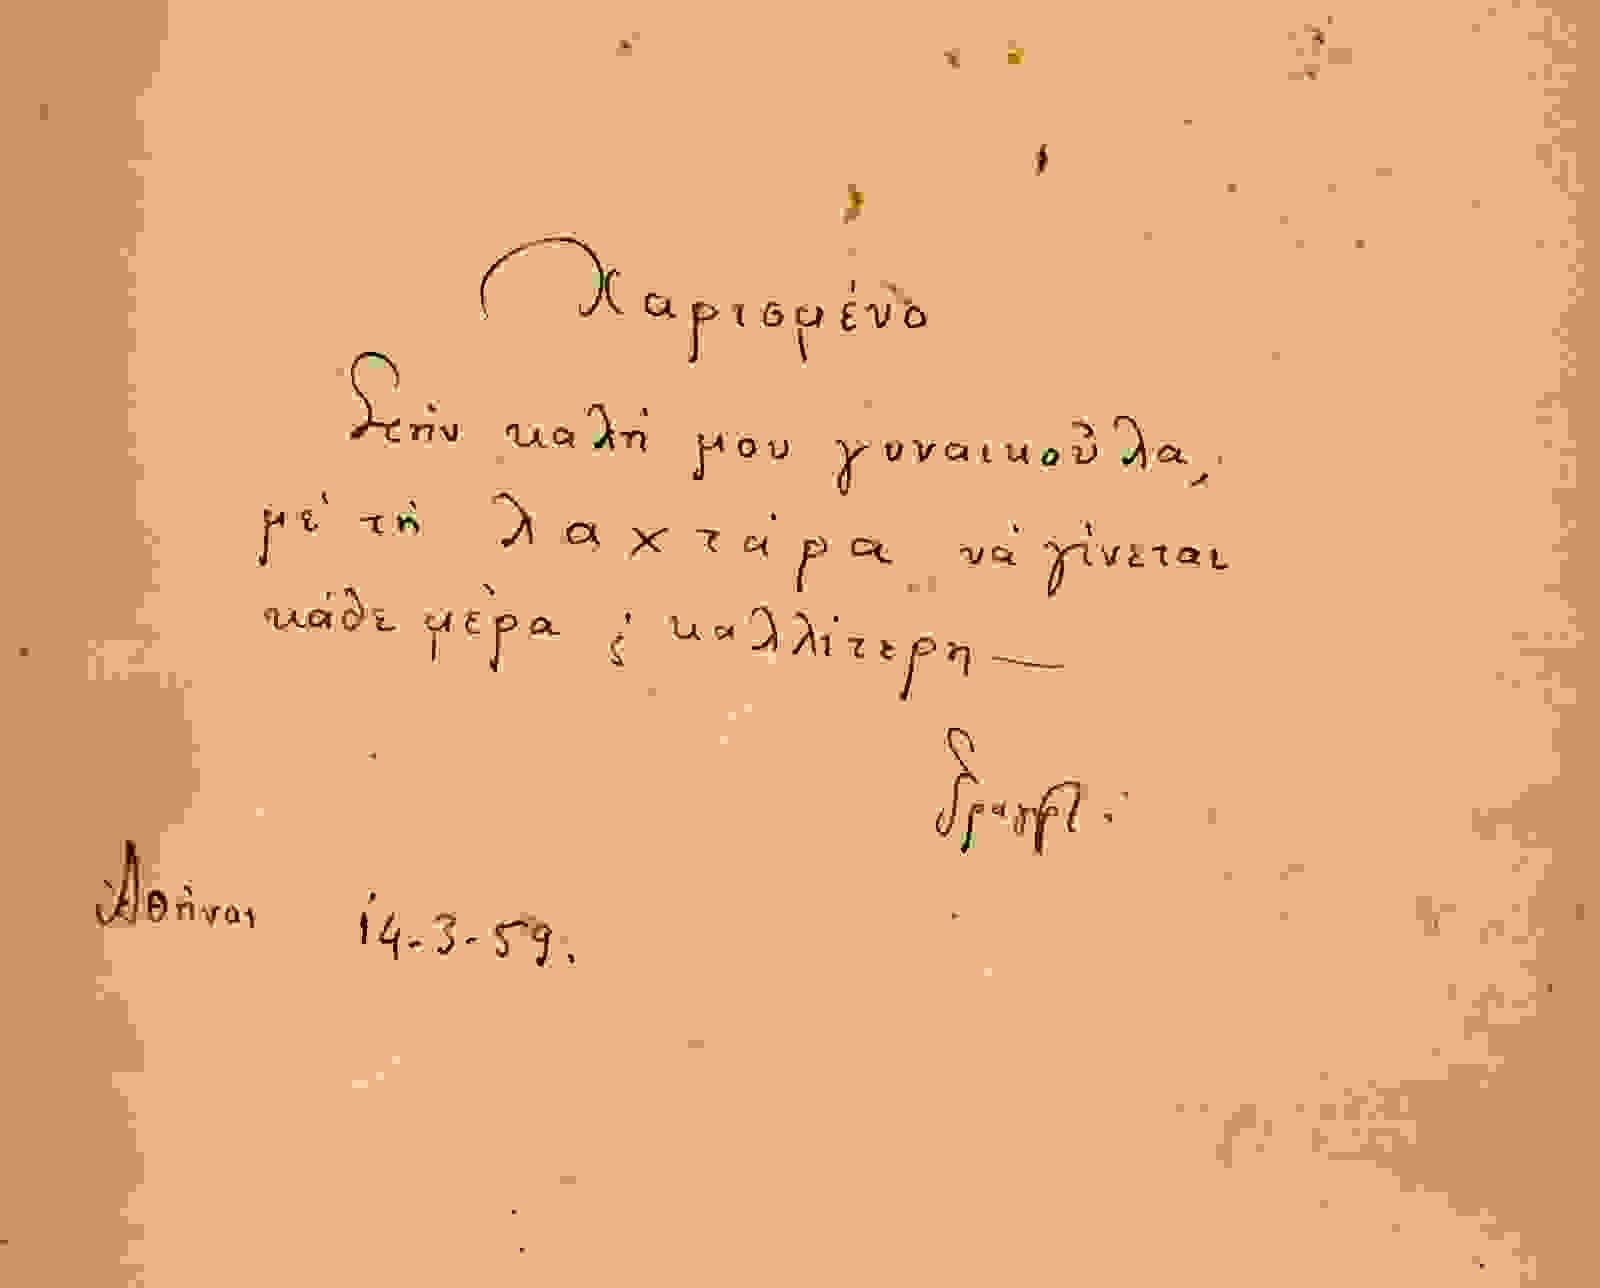 Χαρισμένο
Στὴν καλή μου γυναικοῦλα,
μὲ τὴ λαχτάρα νὰ γίνεται
κάθε μέρα καλλίτερη —
Ἀθήναι 14-3-59.